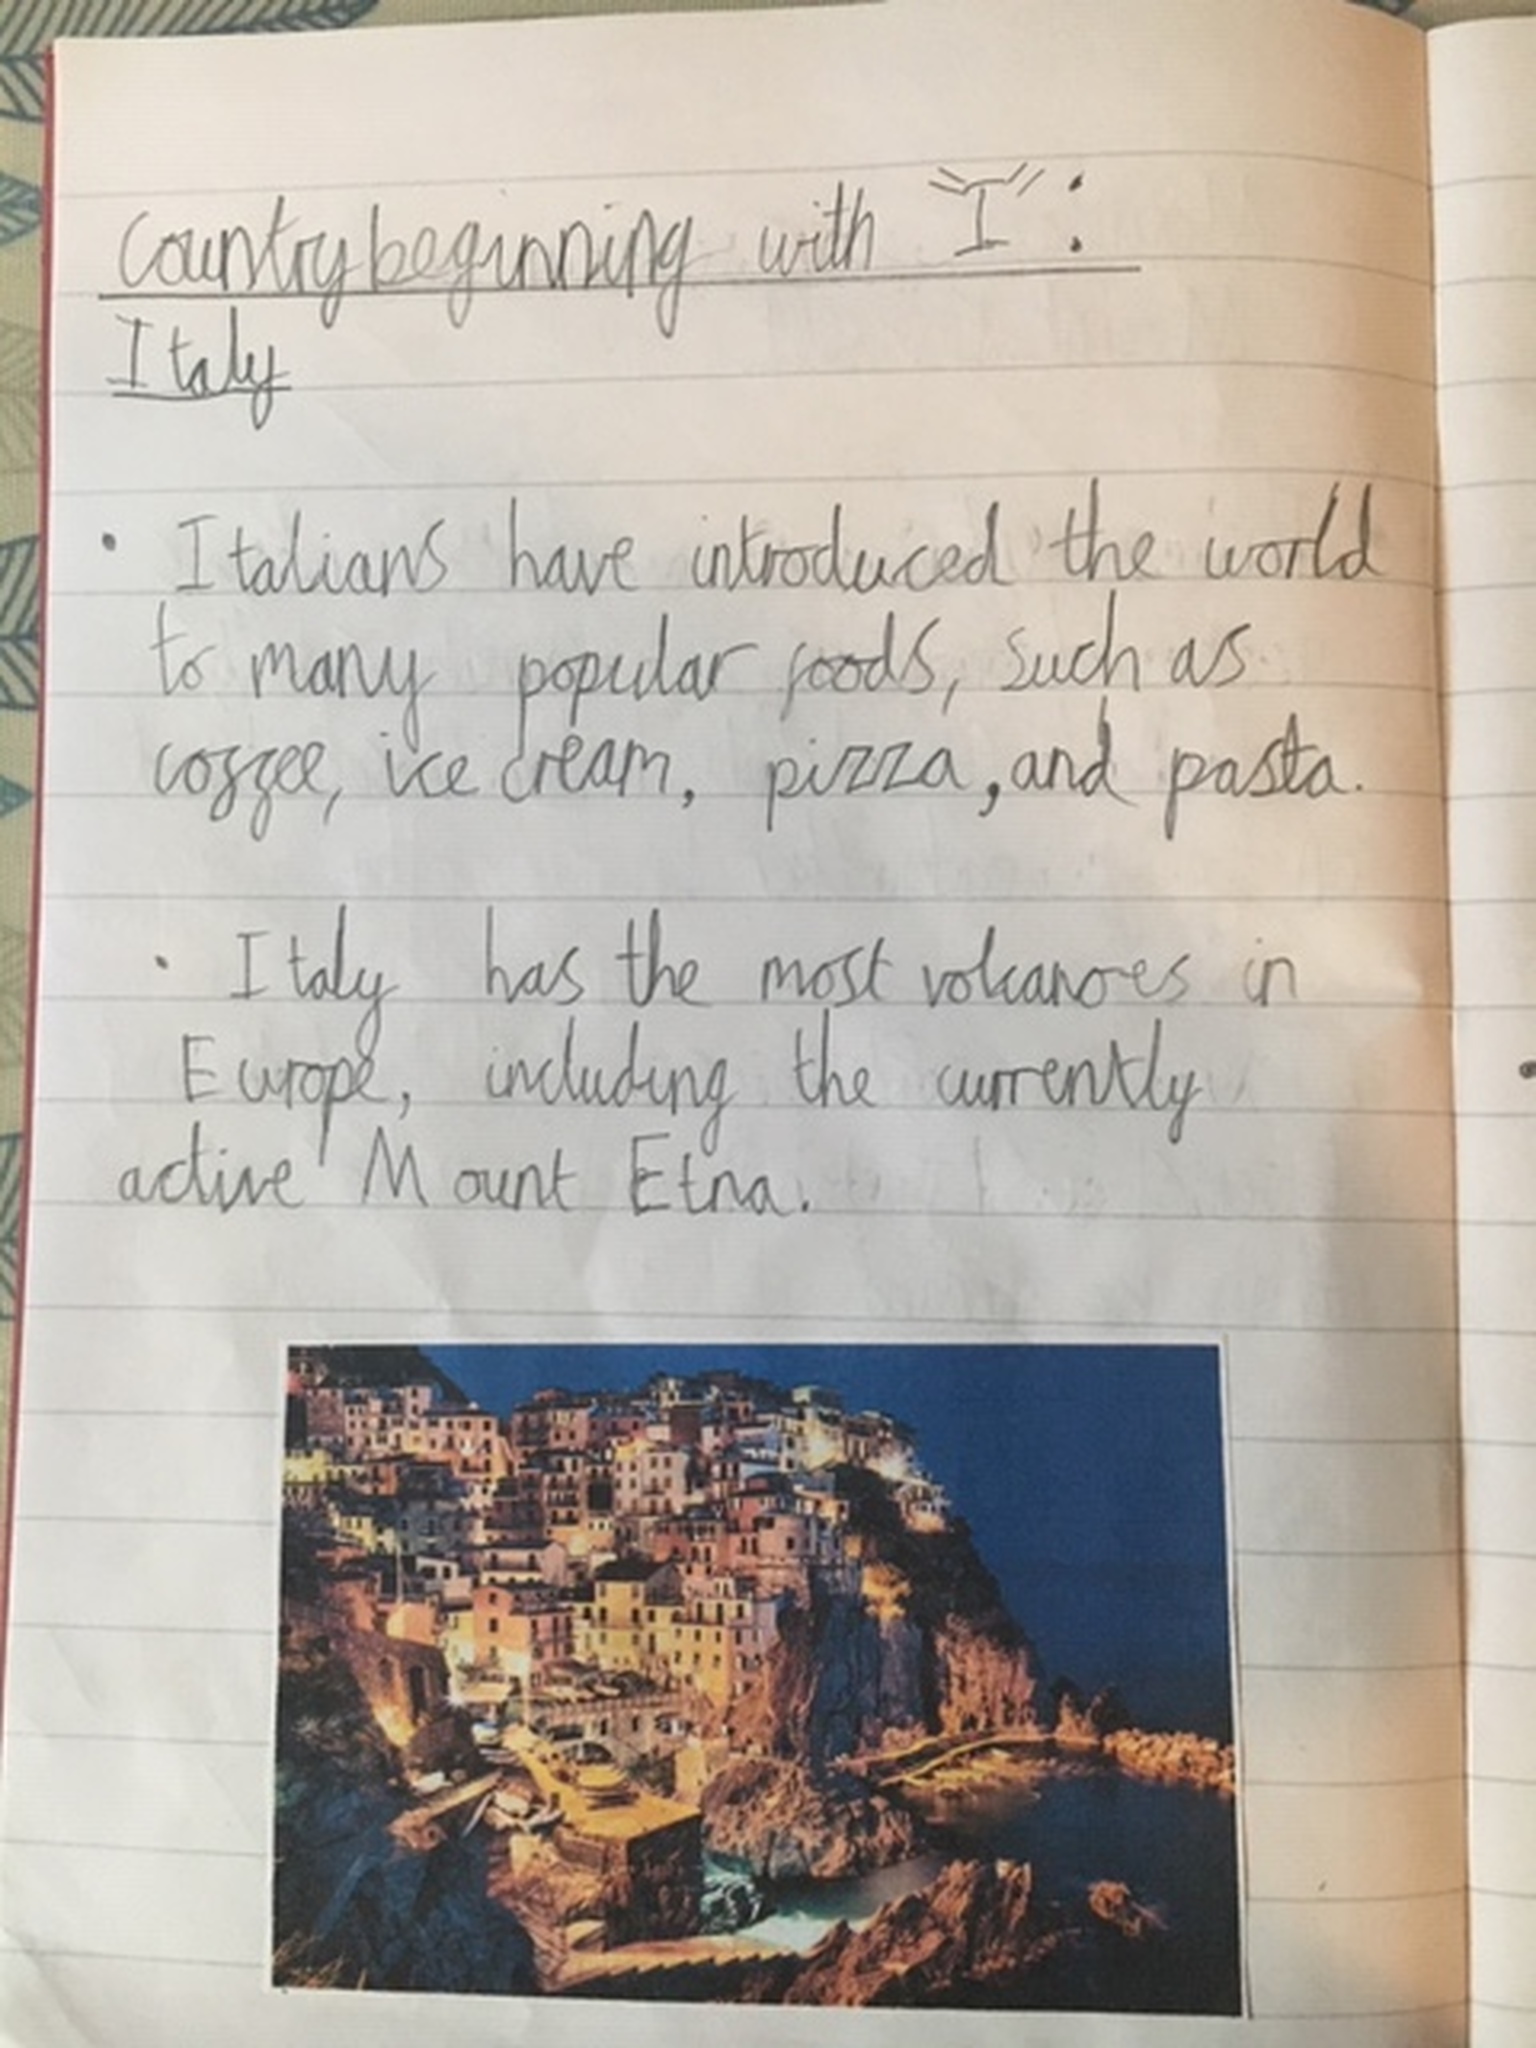 Country beginning with "I":
Italy
• Italians have introduced the world
to many popular foods, such as
coffee, ice cream, pizza, and pasta.
• Italy has the most volcanoes in
Europe, including the currently
active Mount Etna.